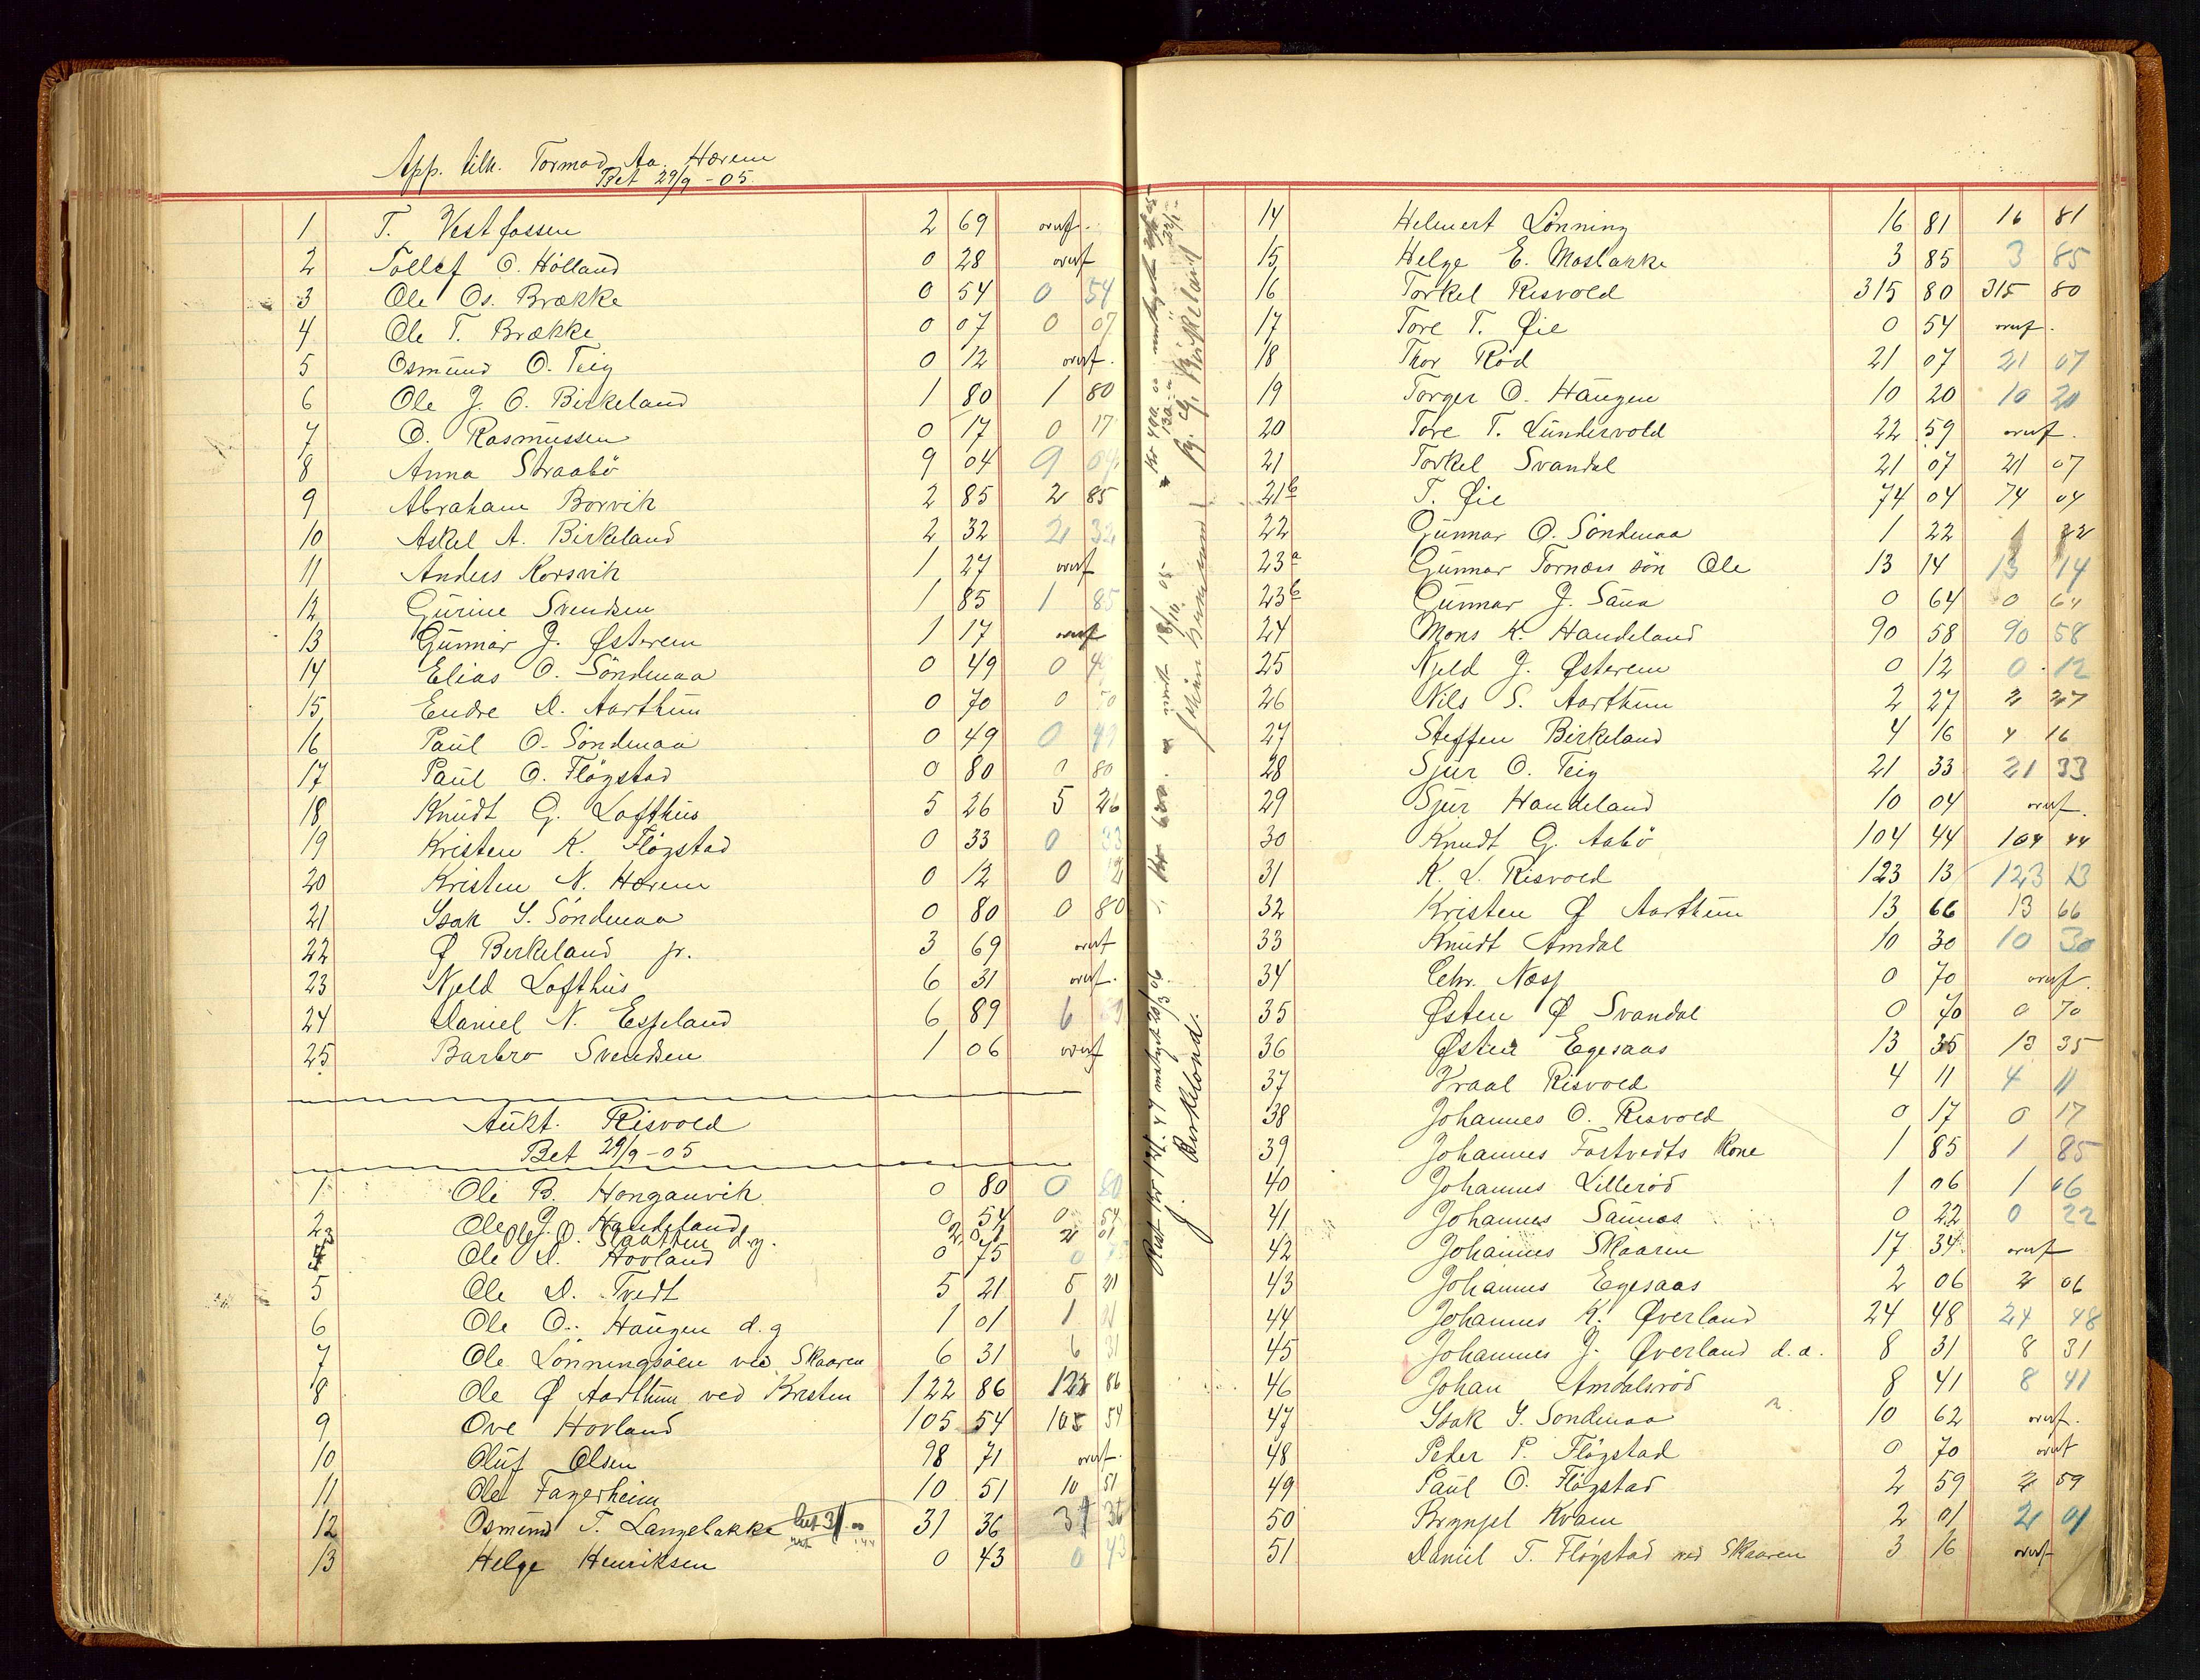 App. tilh. Tormod Aa. Hørem
Bet 29/9 - 05.
1 T. Vestfossen 2 69 overf.
2 Tollef O. Hölland 0 28 overf
3 Ole Os. Brække 0 54 0 54
4 Ole T. Brække 0 07 0 07
5 Osmund O. Teig 0 12 overf.
6 Ole J. O. Birkeland 1 80 1 80
7 O. Rasmussen 0 17 0 17
8 Anna Straabö 9 04 9 04
9 Abraham Borvik 2 85 2 85
10 Askel A. Birkeland 2 32 2 32
11 Anders Korsvik 1 27 overf
12 Gurine Svendsen 1 85 1 85
13 Gunnar J. Østerem 1 17 overf
14 Elias O. Söndenaa 0 49 0 4
15 Endre D. Aarthun 0 70 0 70
16 Paul O. Söndenaa 0 49 0 49
17 Paul O. Flögstad 0 80 0 80
18 Knudt G. Lofthus 5 26 5 26
19 Kristen K. Flögstad 0 33 0 33
20 Kristen N. Hørem 0 12 0 12
21 Isak I. Söndenaa 0 80 0 80
22 Ø Birkeland jr. 3 69 overf
23 Njeld Lofthus 6 31 overf.
24 Daniel N. Espeland 6 89 6 89
25 Barbro Svendsen 1 06 overf
Aukt. Risvold
Bet 29/9 - 05
1 Ole B. Honganvik 0 80 0 80
2 Ole J. Handeland 0 54 0 54
3 Ole J. O. Slaatten d.y. 2 01 2 01
4 Ole D. Hovland 0 75 0
5 Ole D. Tvedt 5 21 5 21
6 Ole O. Haugen d.y 1 01 1 01
7 Ole Lönningsöen ved Skaaren 6 31 6 31
8 Ole Ø Aarthun ved Kristen 122 86 122 86
9 Ove Hovland 105 54 105 54
10 Oluf Olsen 98 71 overf.
11 Ole Fagerheim 10 51 10 51
12 Osmund T. Langelakke 31 36 31 36
13 Helge Henriksen 0 43 0 43
J. Birkeland.
14 Helmert Lönning 16 81 16 81
15 Helge E. Moslakke 3 85 3 85
16 Torkel Risvold 315 80 315 80
17 Tore T. Øie 0 54 overf.
18 Thor Röd 21 07 21 07
19 Torger O. Haugen 10 20 10 20
20 Tore T. Lundervold 22 59 overf.
21 Torkel Svandal 21 07 21 07
21b T. Øie 74 04 74 04
22 Gunnar O. Söndenaa 1 22 1 22
23a Gunnar Tornæs sön Ole 13 14 13 14
23b Gunnar J. Sana 0 64 0 64
24 Mons K. Handeland 90 58 90 58
25 Njeld J. Østerem 0 12 0 12
26 Nils S. Aarthun 2 27 2 27
27 Steffen Birkeland 4 16 4 16
28 Sjur O. Teig 21 33 21 33
29 Sjur Handeland 10 04 overf.
30 Knudt G. Aabö 104 44 104 44
31 K. L. Risvold 123 13 123 13
32 Kristen Ø Aarthun 13 66 13 66
33 Knudt Amdal 10 30 10 30
34 Chr. Næss 0 70 overf.
35 Østen Ø Svandal 0 70 0 70
36 Østen Egesaas 13 35 13 35
37 Vraal Risvold 4 11 4 11
38 Johannes O. Risvold 0 17 0 17
39 Johannes Tortvedts Kone 1 85 1 85
40 Johannes Lilleröd 1 06 1 06
41 Johannes Saunes 0 22 0 22
42 Johannes Skaaren 17 34 overf
43 Johannes Egesaas 2 06 2 06
44 Johannes K. Øverland 24 48 24 48
45 Johannes J. Øverland d.a. 8 31 8 31
46 Johan Amdalsröd 8 41 8 41
47 Isak I. Söndenaa 10 62 overf.
48 Peder P. Flögstad 0 70 overf
49 Paul O. Flögstad 2 59 2 59
50 Brynjel Kvam 2 01 2 01
51 Daniel T. Flögstad ved Skaaren 3 16 overf